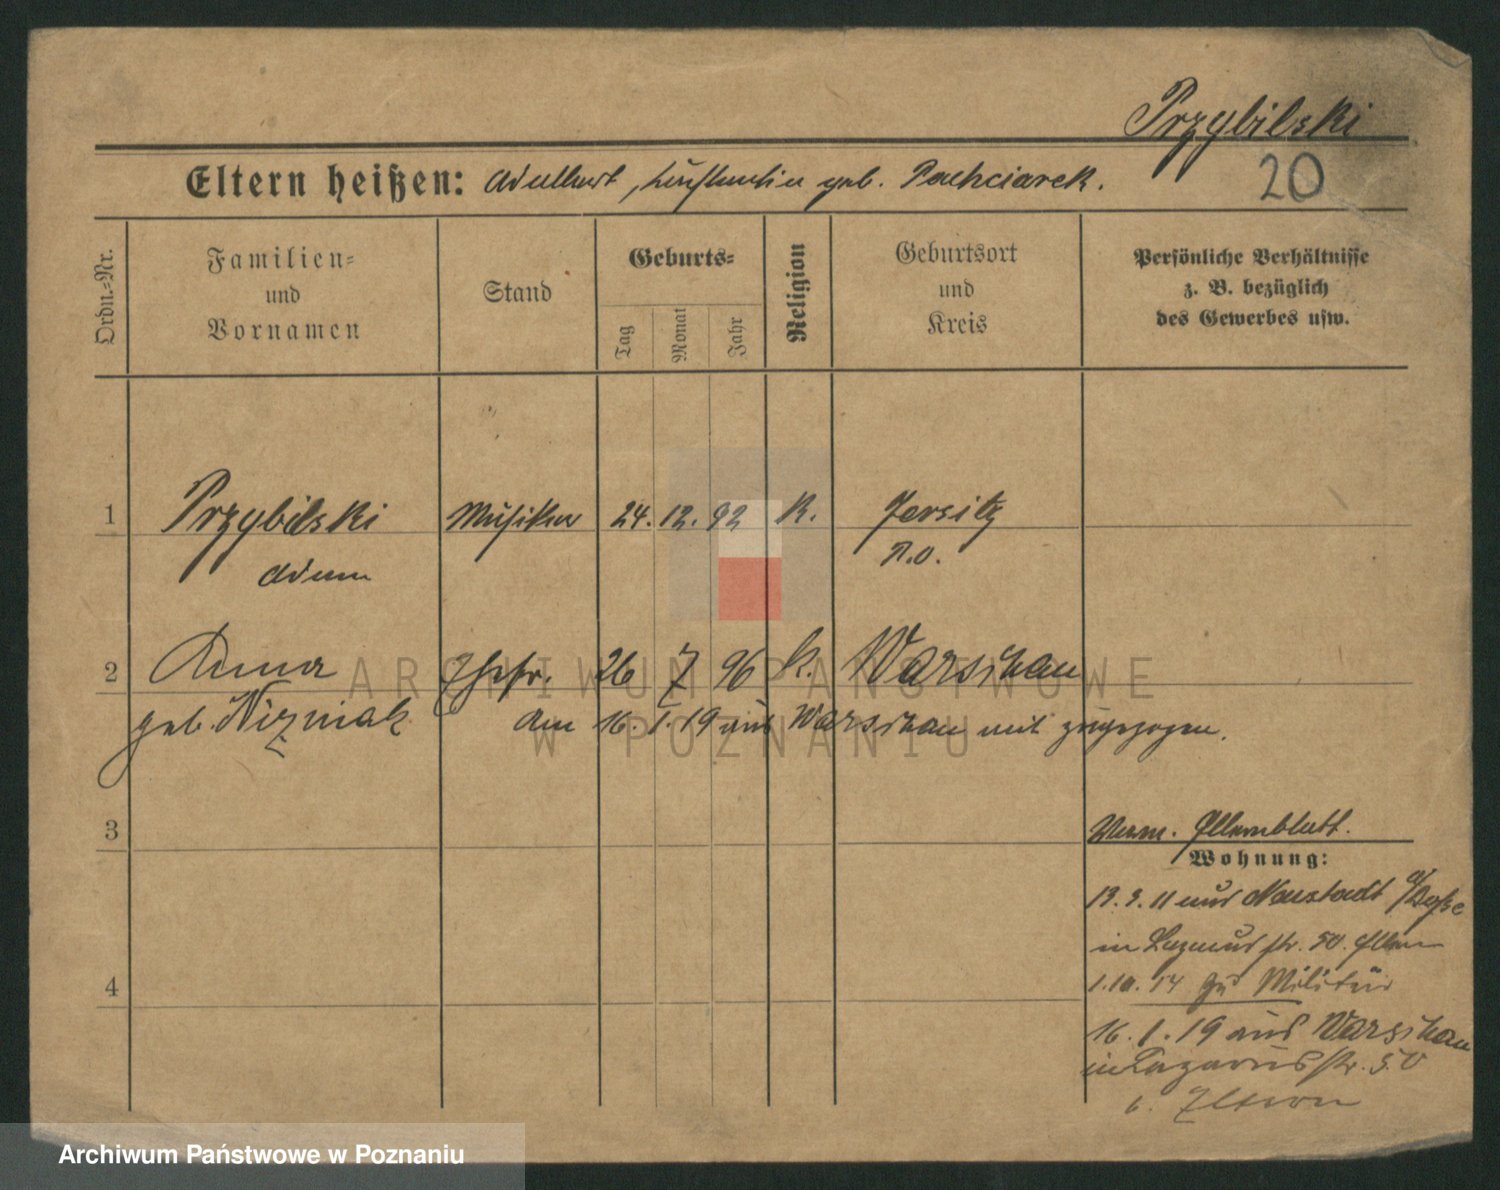 Przybilski
20
Eltern heißen: Adalbert, Konstantia geb. Pachciarek.
Ordn.=Nr.
Familien=
und
Vornamen
Stand
Geburts=
Tag
Monat
Jahr
Religion
Geburtsort
und
Kreis
Persönliche Verhältnisse
z. B. bezüglich
des Gewerbes usw.
1 Przybilski Musiker 24. 12. 92 K. Jersitz
Adam P.O.
2 Anna Ehefr. 26 7 96 k. Warschau
geb. Am 16. 1. 19 aus Warschau mit zugezogen.
3
4
Verm. Elternblatt.
Wohnung:
13. 3. 11 aus Neustadt a/Dosse
in Lazarus str. 50. Eltern
1.10.14 zu Militär
16. 1. 19 aus Warschau
in Lazarus str. 50
b. Eltern
ARCHIWUM PAŃSTWOWE
W POZNANIU
Archiwum Państwowe w Poznaniu